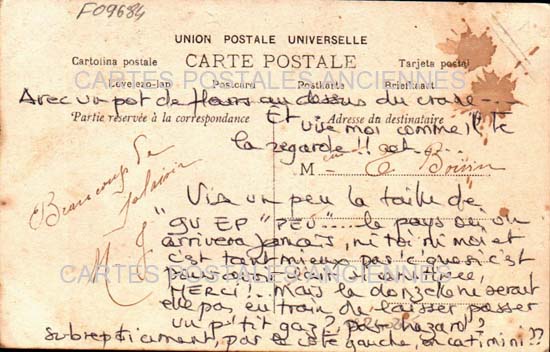 F09684
UNION POSTALE UNIVERSELLE
CARTE POSTALE
Cartolina postale
Tarjeta postal
Levelezo-lap
Postcard
Postkarte
Briefkaart
CARTES POSTALES ANCIENNES
Avec un pot de fleurs au dessus du crane ---
Partie réservée à la correspondance
Adresse du destinataire
Et
vise moi comme il te
la regarde !!
M
Beaucoup de
Vise un peu la taille de
"GUEP "PEU" --- le pays où on
arrivera jamais, ni toi ni moi et
c'est tant mieux
c'est
CARTES POSTALES ANCIENNES
MERCI!.. Mais la donzelle ne serait
elle pas en train de laisser passer
un p'tit gaz, par hazard?
subrepticement, par le côté gauche, en catimini ??